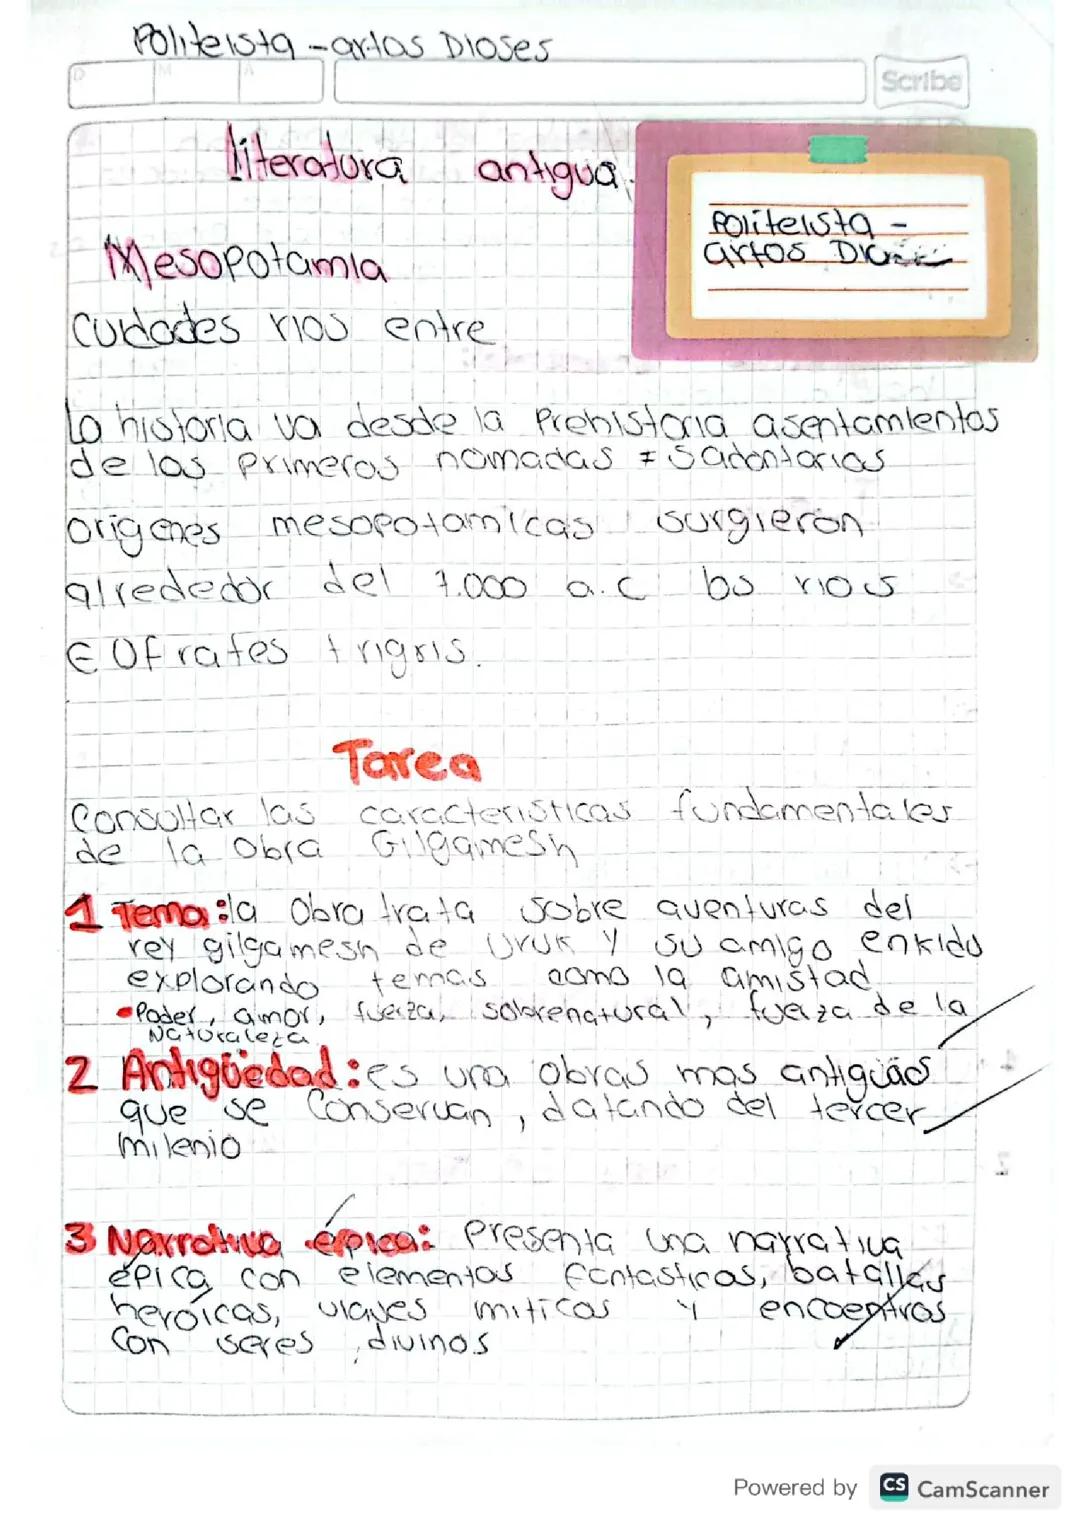 Politeista - artos Dioses
D M A
Scribe
literatura antigua.
Politeista -
artos
Mesopotamia
Cuidades rios entre
la historia va desde la Prehistoria asentamientos
de los Primeros nomadas ≠ Sadentarios
origenes mesopotamicas surgieron
alrededor del 7.000 a.C los rios
EUfrates trigris.
Tarea
Consultar las caracteristicas fundamentales
de la Obra Gilgamesh
1 Tema: la Obra trata sobre aventuras del
rey gilgamesh de Uruk y su amigo enkidu
explorando temas como la amistad
• Poder, amor, fuerza, sobrenatural, fuerza de la
Naturaleza
2 Antigüedad: es una obras mas antiguas
que se Conservan, datando del tercer
milenio
3 Narrativa épica: Presenta una narrativa
épica con elementos fantasticos, batallas
heroicas, viajes miticos y encoentros
Con seres divinos
Powered by CS CamScanner